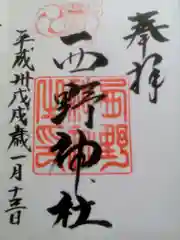 奉拝
西野神社
平成卅戊戌歳一月十三日